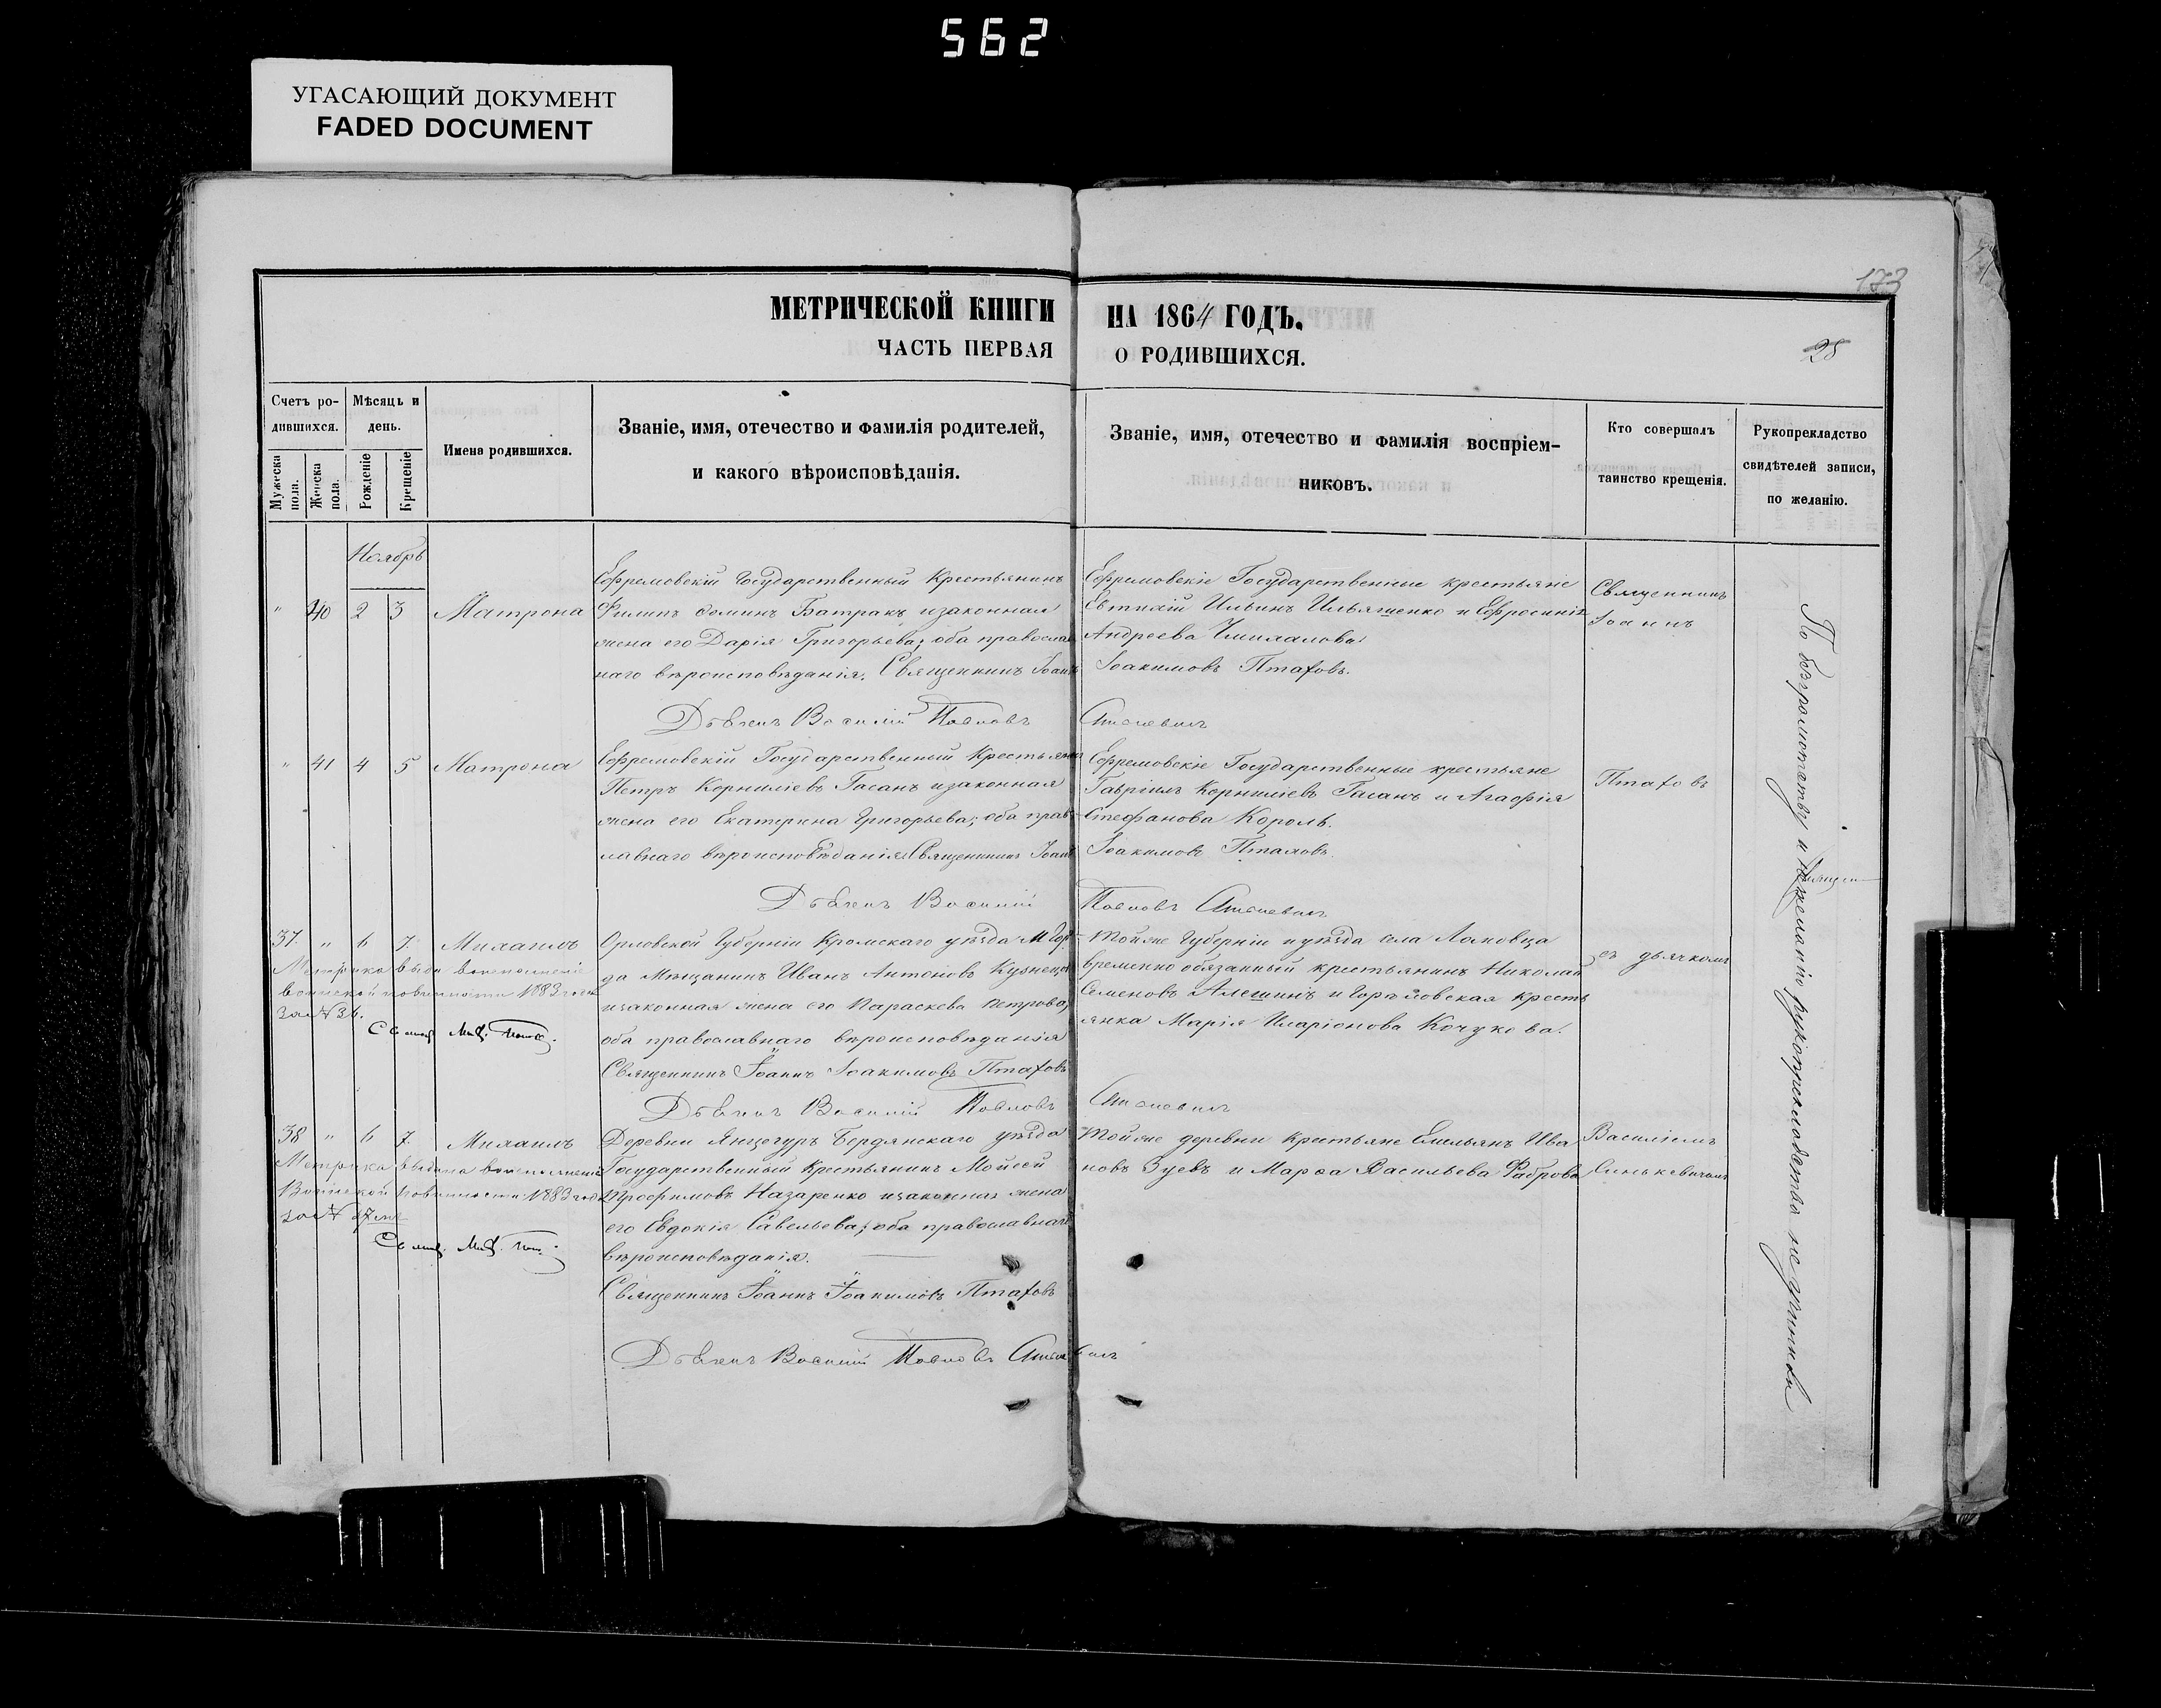 562
УГАСАЮЩИЙ ДОКУМЕНТ
FADED DOCUMENT
173
МЕТРИЧЕСКОЙ КНИГИ НА 1864 ГОДЪ.
ЧАСТЬ ПЕРВАЯ О РОДИВШИХСЯ.
28
Счетъ ро-
дившихся.
Мужеска пола.
Женска пола.
Мѣсяць и
день.
Рожденіе
Крещеніе
Имена родившихся.
Званіе, имя, отечество и фамилія родителей,
и какого вѣроисповѣданія.
Званіе, имя, отечество и фамилія воспріем-
никовъ.
Кто совершалъ
таинство крещенія.
Рукоприкладство
свидѣтелей записи,
по желанію.
Ноябрь
" 40 2 3 Матрона
Ефремовскій Государственный Крестьянинъ
Филипъ Ѳоминъ Батракъ и законная
жена его Дарія Григорьева; оба православ
наго вѣроисповѣданія. Священникъ Іоаннъ
Дьячекъ Василій Павловъ
Ефремовскіе Государственные крестьяне
Евтихій Ильинъ Ильяшенко и Ефросинія
Андреева
Іоакимовъ Птаховъ.
" 41 4 5 Матрона
Ефремовскій Государственный Крестьянинъ
Петръ Корниліевъ Гасанъ и законная
жена его Екатерина Григорьева; оба право
лавнаго вѣроисповѣданія Священникъ Іоаннъ
Дьячекъ Василій
Ефремовскіе Государственные крестьяне
Гавріилъ Корниліевъ Гасанъ и Агафія
Стефанова Король.
Іоакимовъ Птаховъ.
Павловъ
37. " 6 7. Михаилъ
Метрика выдана
воинской повинности 1883 года
за № 36.
Орловской Губерніи Кромскаго уѣзда М Гор
да Мѣщанинъ Иванъ Антоновъ Кузнецовъ
и законная жена его Параскева Петрова,
оба православнаго вѣроисповѣданія
Священникъ Іоаннъ Іоакимовъ Птаховъ
Дьячекъ Василій Павловъ
Тойже Губерніи и уѣзда села
временно обязанный крестьянинъ Николай
Семеновъ Алешинъ и крестъ
янка Марія Иларіонова Кочукова.
38 " 6 7. Михаилъ
Метрика выдана
Воинской Повинности 1883 года
за №
Деревни Янцегуръ Бердянскаго уѣзда
Государственный Крестьянинъ Моисей
Трофимовъ Назаренко и законная жена
его Евдокія Савельева; оба православнаго
вѣроисповѣданія.
Священникъ Іоаннъ Іоакимовъ Птаховъ
Дьячекъ Василій Павловъ
Тойже деревни крестьяне Емельянъ Ива
новъ Зуевъ и Марѳа Васильева
Священникъ
Іоаннъ
Птаховъ
съ дьячкомъ
Василіемъ
Синькевичемъ
По безграмотству и нежеланію рукоприкладства не учинили